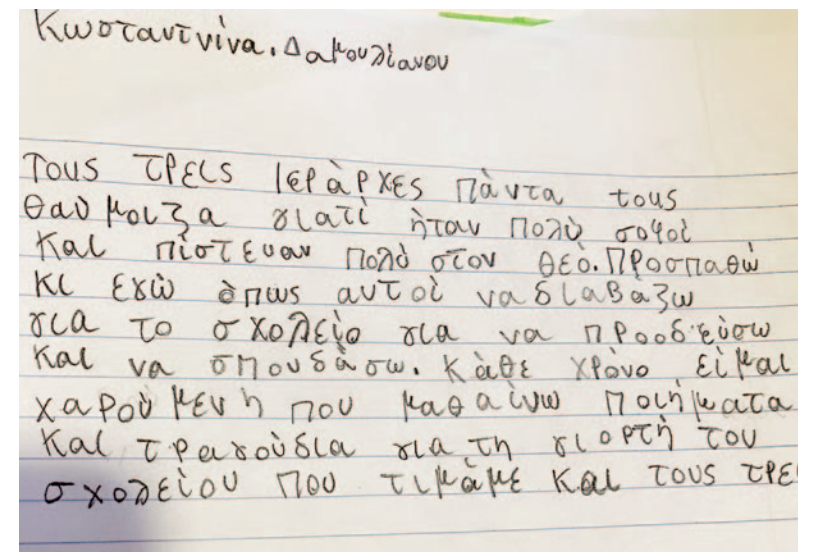 Κωσταντνίνα. Δαμουλιανου
Τους τρεις Ιεράρχες πάντα τους
θαύμαζα γιατί ήταν πολύ σοφοί
Και πίστευαν πολύ στον θεό. Προσπαθώ
κι εγώ όπως αυτοί να διαβάζω
για το σχολείο για να προοδεύσω
και να σπουδάσω. Κάθε χρόνο είμαι
χαρούμενη που μαθαίνω ποιήματα
και τραγούδια για τη γιορτή του
σχολείου που τιμάμε και τους τρε